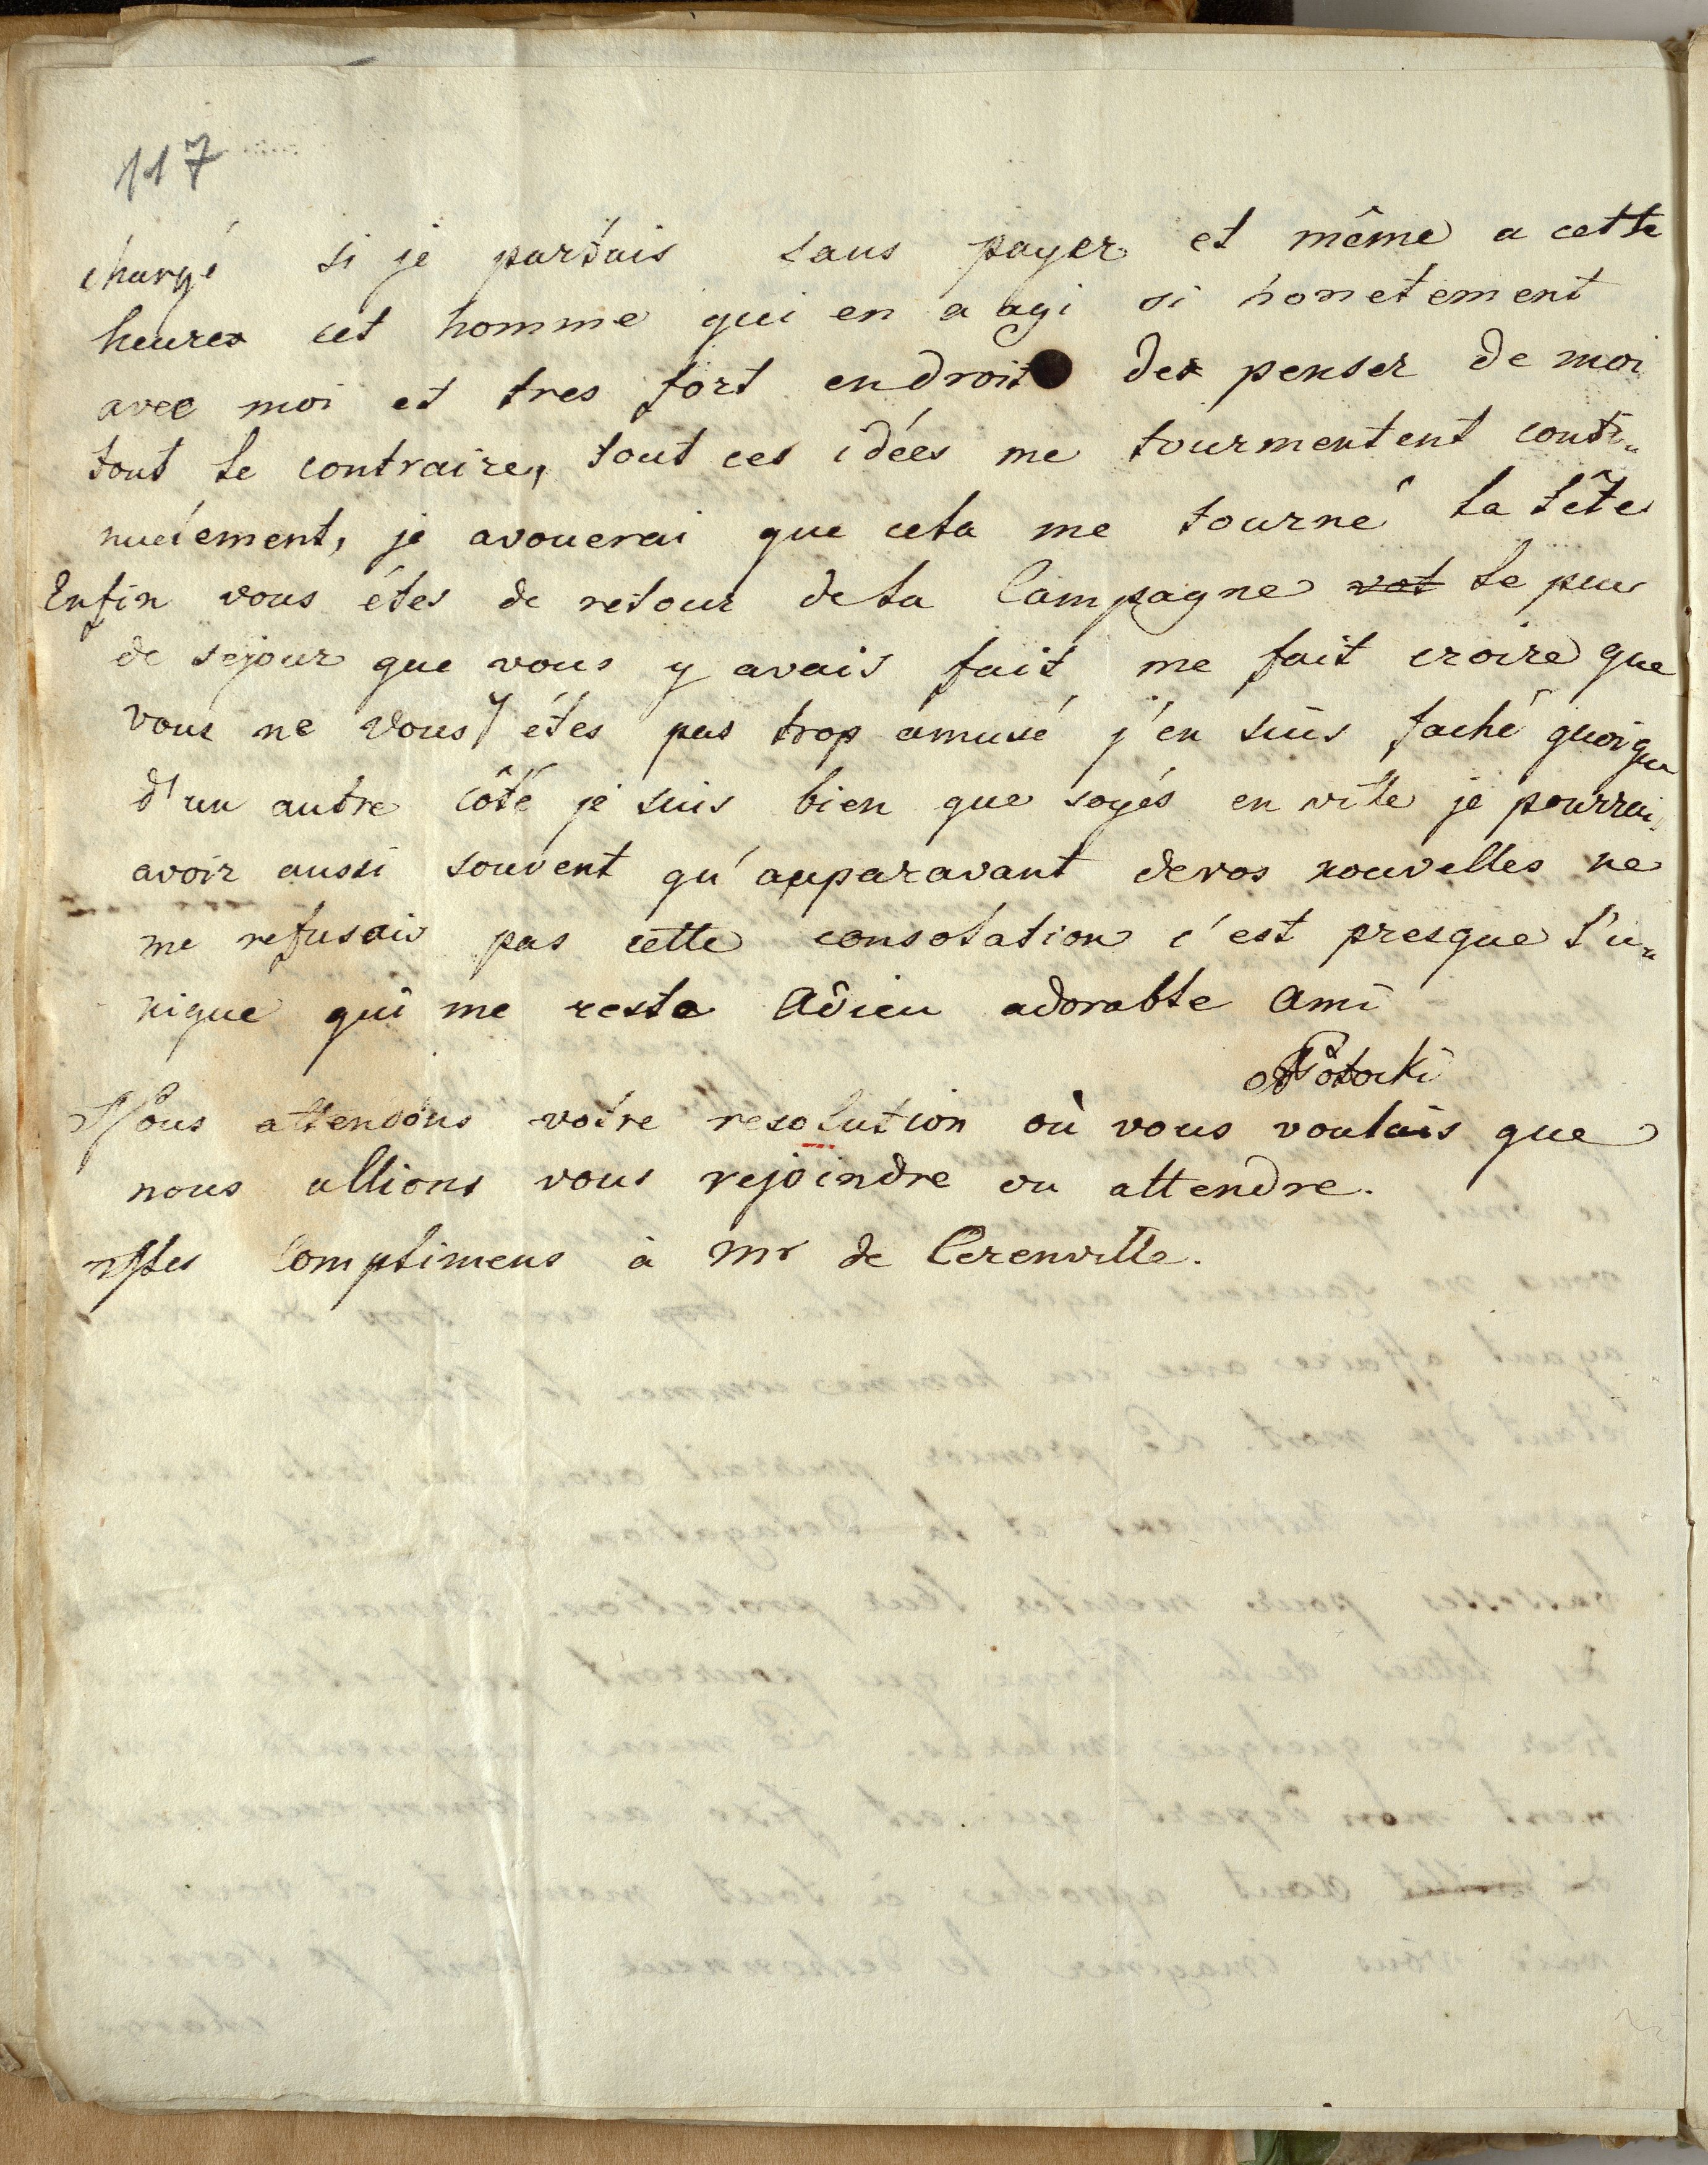 117
chargé si je partais sans payer et même a cette
heure cet homme qui en a agi si honetement
avec moi et tres fort en droit de penser de moi
tout le contraire, tout ces idées me tourmentent conti„
nuelement, je avouerai que cela me tourne la tête
Enfin vous étes de retour de la Campagne vot le peu
de sejour que vous y avais fait me fait croire que
vous ne vous y étes pas trop amusé j'en suis faché quoique
d'un autre côté je suis bien que soyés en ville je pourrai
avoir aussi souvent qu'apparavant de vos nouvelles ne
me refusais pas cette consolation c'est presque l'u„
nique qui me reste Adieu adorable Ami
Potocki
Nous attendons votre resolution où vous voulais que
nous allions vous rejoindre ou attendre.
Mes Complimens à Mr de Cerenville.